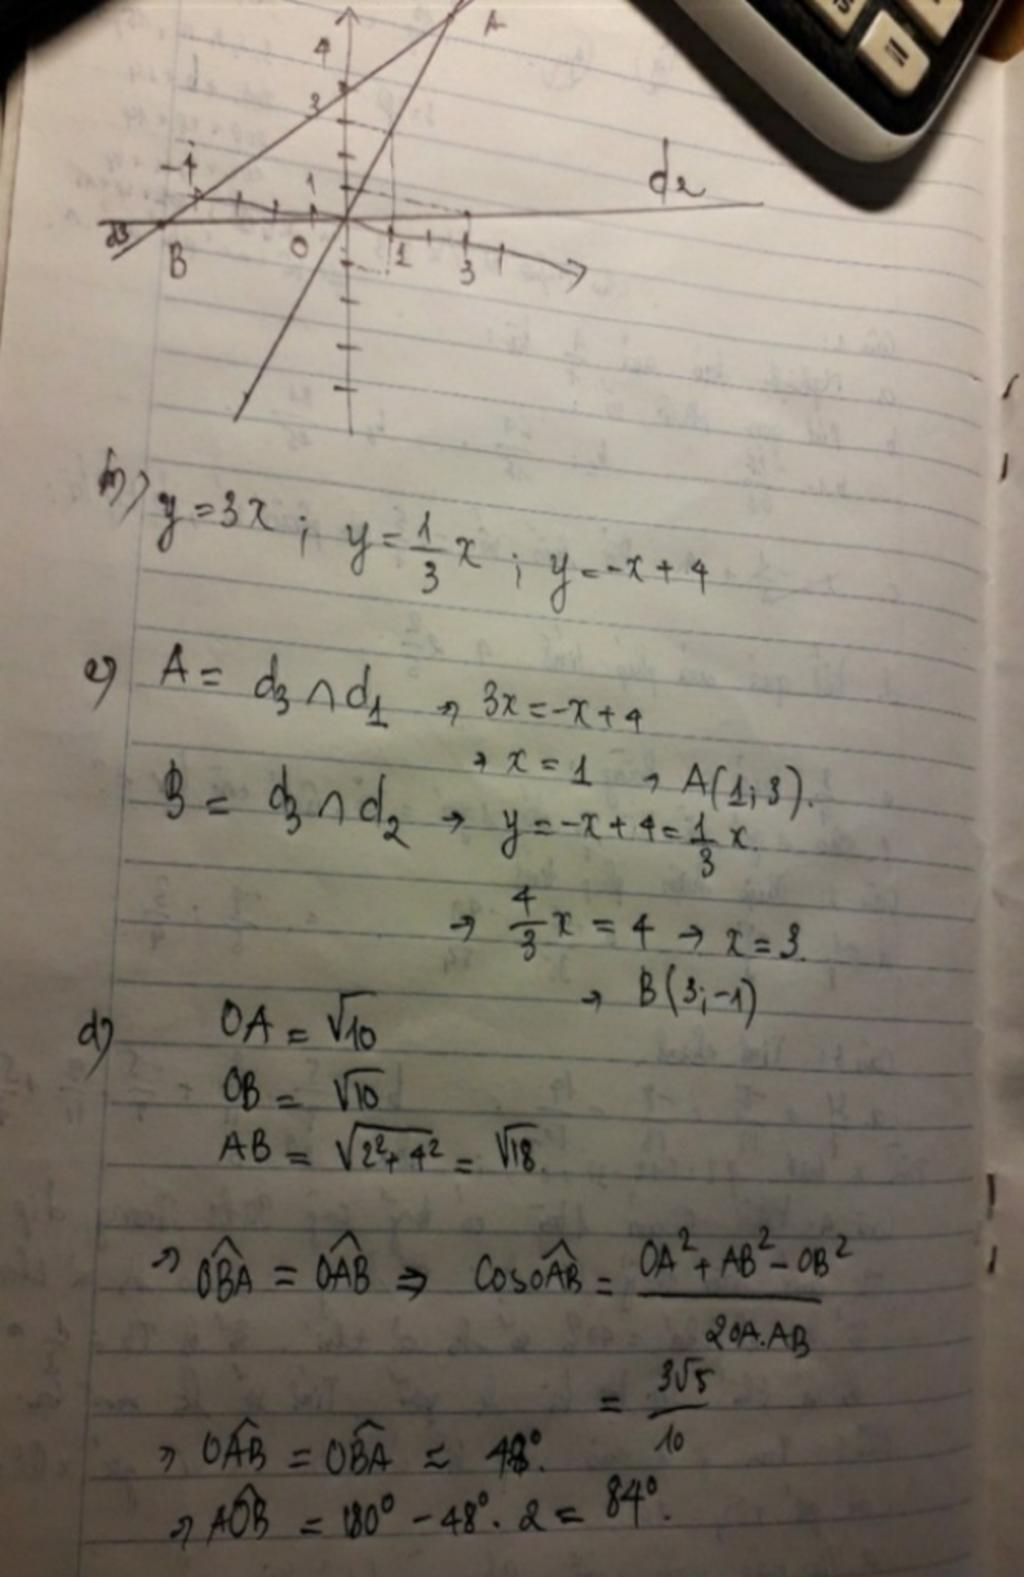 4
A
3
-4
1
d2
d3
B
O
1
3
b) y = 3x ; y = \frac{1}{3}x ; y = -x + 4
c) A = d3 ∩ d1 → 3x = -x + 4
→ x = 1 → A(1; 3).
B = d3 ∩ d2 → y = -x + 4 = \frac{1}{3}x.
→ \frac{4}{3}x = 4 → x = 3.
→ B(3; -1)
d) OA = √10
OB = √10
AB = √(2² + 4²) = √18.
⇒ \widehat{OBA} = \widehat{OAB} ⇒ Cos\widehat{OAB} = \frac{OA² + AB² - OB²}{2OA.AB}
= \frac{3√5}{10}
⇒ \widehat{OAB} = \widehat{OBA} = 48°.
⇒ \widehat{AOB} = 180° - 48° . 2 = 84°.